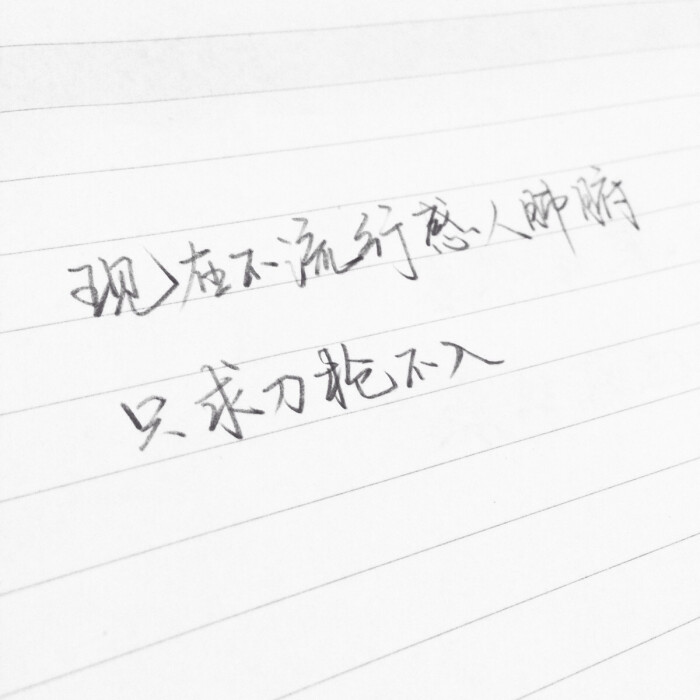 现在不流行感人肺腑
只求刀枪不入